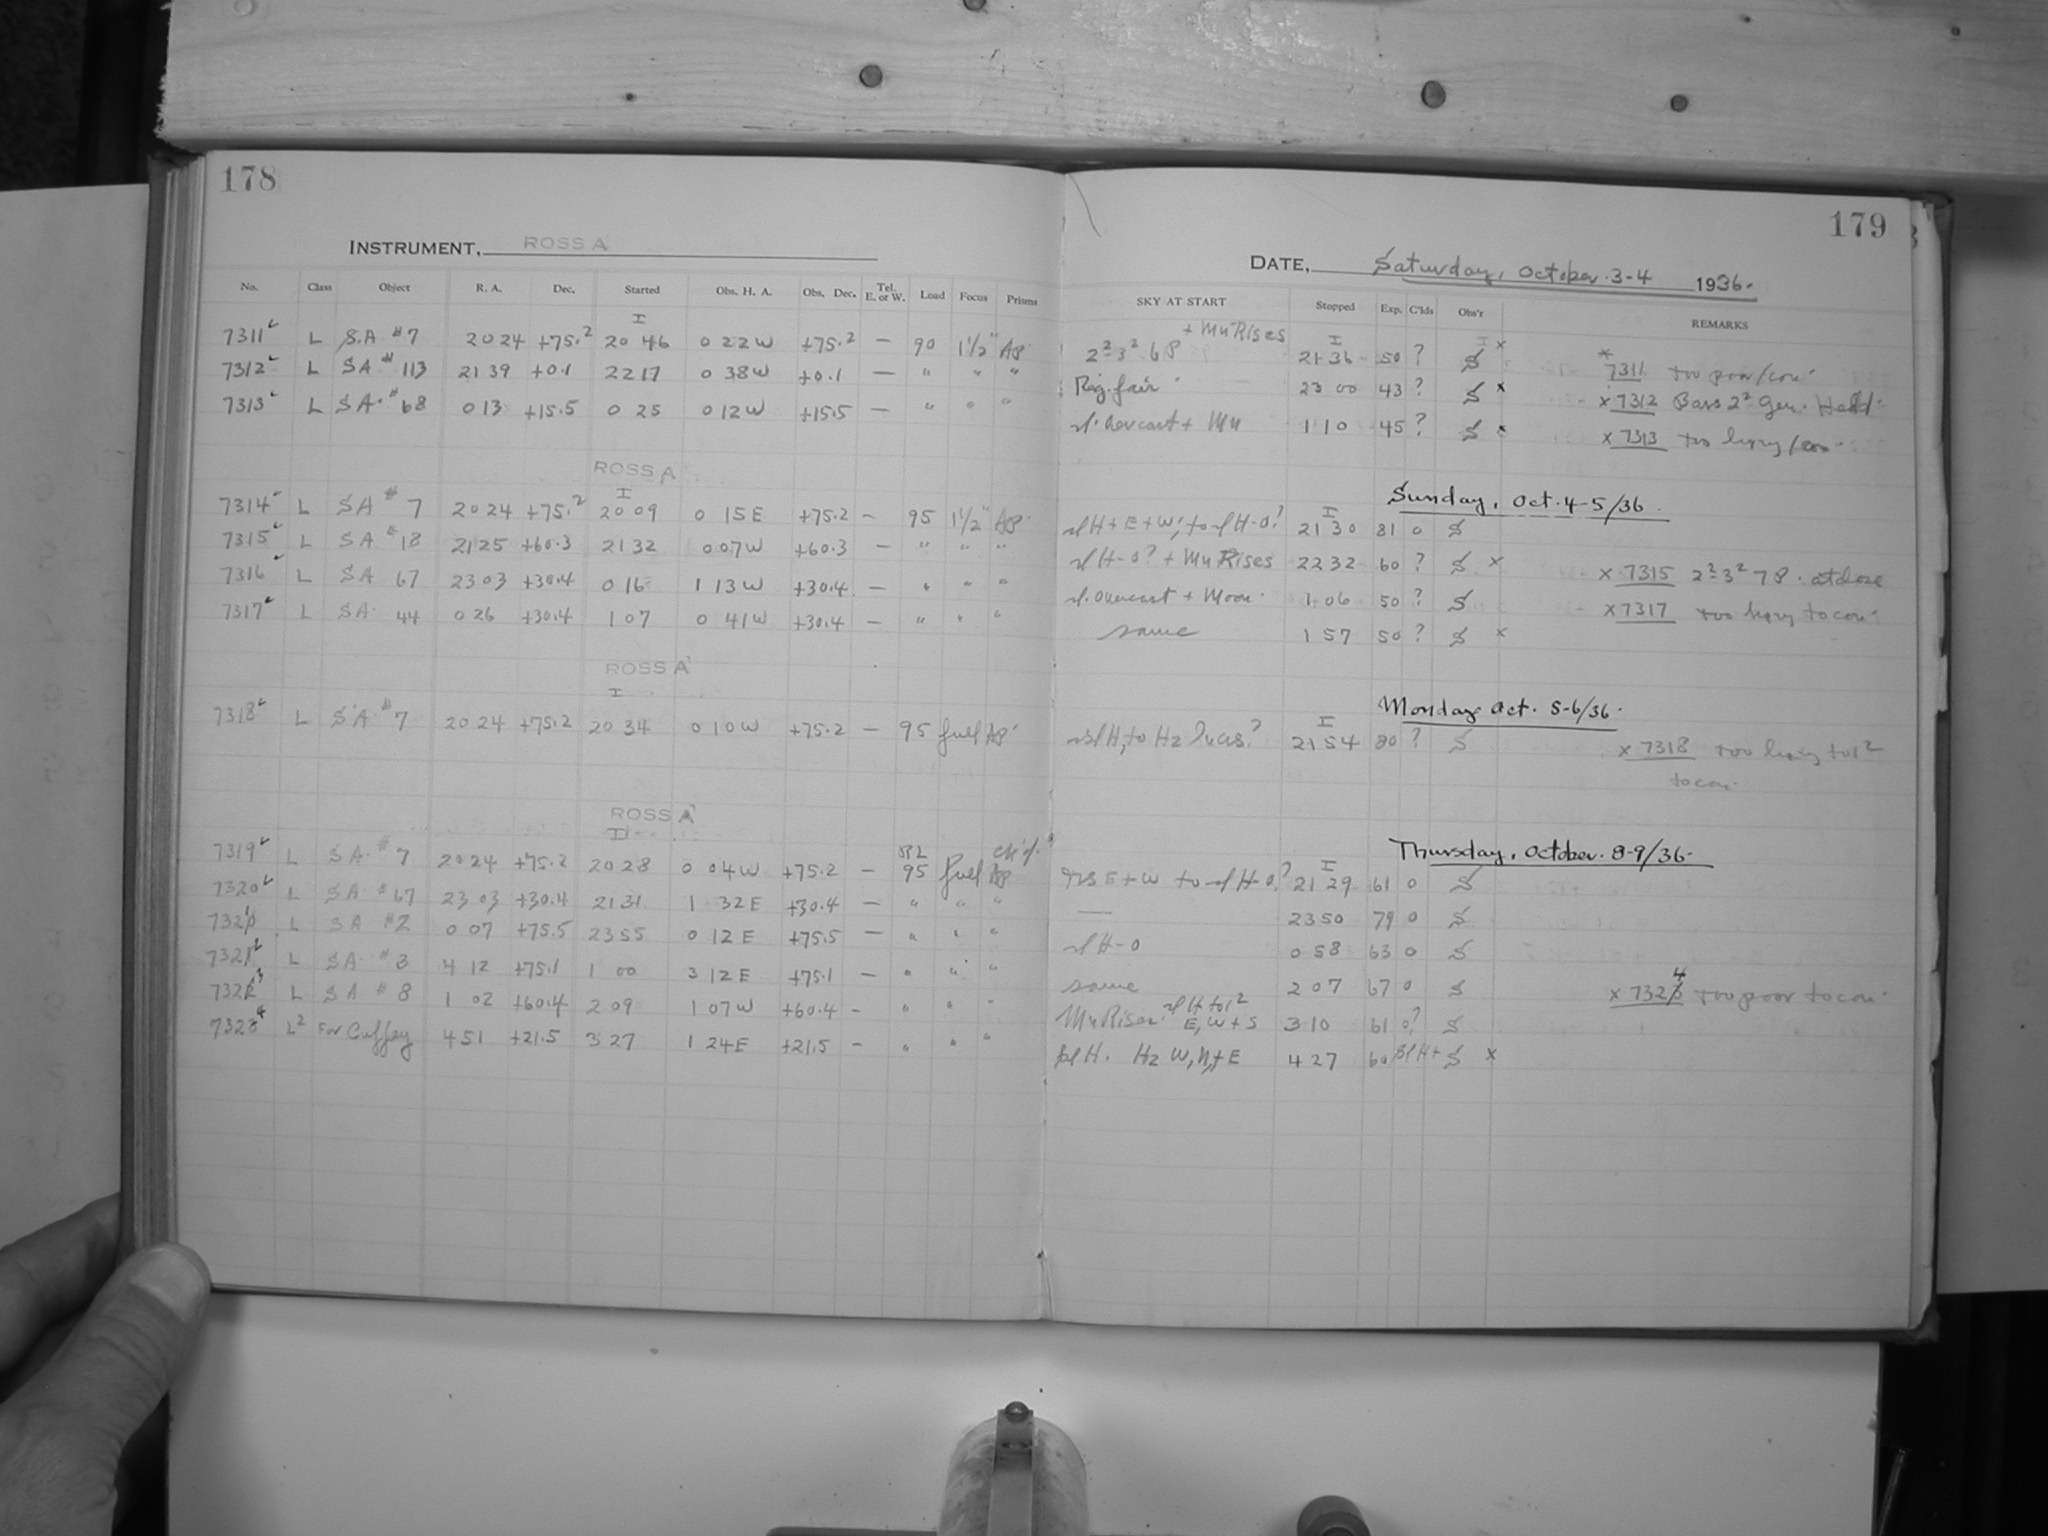 178
INSTRUMENT, ROSS A
No. Class Object R. A. Dec. Started Obs. H. A. Obs. Dec. Tel. E. or W. Load Focus Prisms
I
7311 L S.A. #7 20 24 +75.2 20 46 0 22 W +75.2 — 90 1 1/2" Ap.
7312 L SA # 113 21 39 +0.1 22 17 0 38 W +0.1 — " " "
7313 L SA. # 68 0 13 +15.5 0 25 0 12 W +15.5 — " " "
ROSS A
I
7314 L SA # 7 20 24 +75.2 20 09 0 15 E +75.2 — 95 1 1/2" Ap.
7315 L SA # 18 21 25 +60.3 21 32 0 07 W +60.3 — " " "
7316 L SA 67 23 03 +30.4 0 16 1 13 W +30.4 — " " "
7317 L SA. 44 0 26 +30.4 1 07 0 41 W +30.4 — " " "
ROSS A
I
7318 L SA #7 20 24 +75.2 20 34 0 10 W +75.2 — 95 full Ap.
ROSS A
I
7319 L SA. # 7 20 24 +75.2 20 28 0 04 W +75.2 — 95 full Ap.
7320 L SA. # 67 23 03 +30.4 21 31 1 32 E +30.4 — " " "
7321 L SA #2 0 07 +75.5 23 55 0 12 E +75.5 — " " "
7322 L SA. # 3 4 12 +75.1 1 00 3 12 E +75.1 — " " "
7323 L SA # 8 1 02 +60.4 2 09 1 07 W +60.4 — " " "
7324 L2 For Cuffey 4 51 +21.5 3 27 1 24 E +21.5 — " " "
179
DATE, Saturday, October. 3-4 1936.
SKY AT START Stopped Exp. C'lds Obs'r REMARKS
+ Mn Rises I
2²-3² 6P 21 36 50 ? S x * 7311 too poor/con.
Reg. fair 23 00 43 ? S x x 7312 Bars 2² Gen. Held.
sl. overcast + Mn 1 10 45 ? S x x 7313 too hazy/con.
Sunday, Oct. 4-5/36
I
sl H + E + W; to sl H-0? 21 30 81 0 S
sl H-0? + Mn Rises 22 32 60 ? S x x 7315 2²-3² 7P. at close
sl. overcast + Moon. 1 06 50 ? S x 7317 too hazy to con.
same 1 57 50 ? S x
Monday Oct. 5-6/36.
I
21 54 80 ? S x 7318 too hazy to 1²
to con.
Thursday, October. 8-9/36.
I
E + W to sl H-0? 21 29 61 0 S
— 23 50 79 0 S
sl H-0 0 58 63 0 S
same 2 07 67 0 S x 7324 too poor to con.
Mn Rises. sl H to 1² E, W + S 3 10 61 0? S
sl H. Hz W, N, + E 4 27 60 sl H + S x